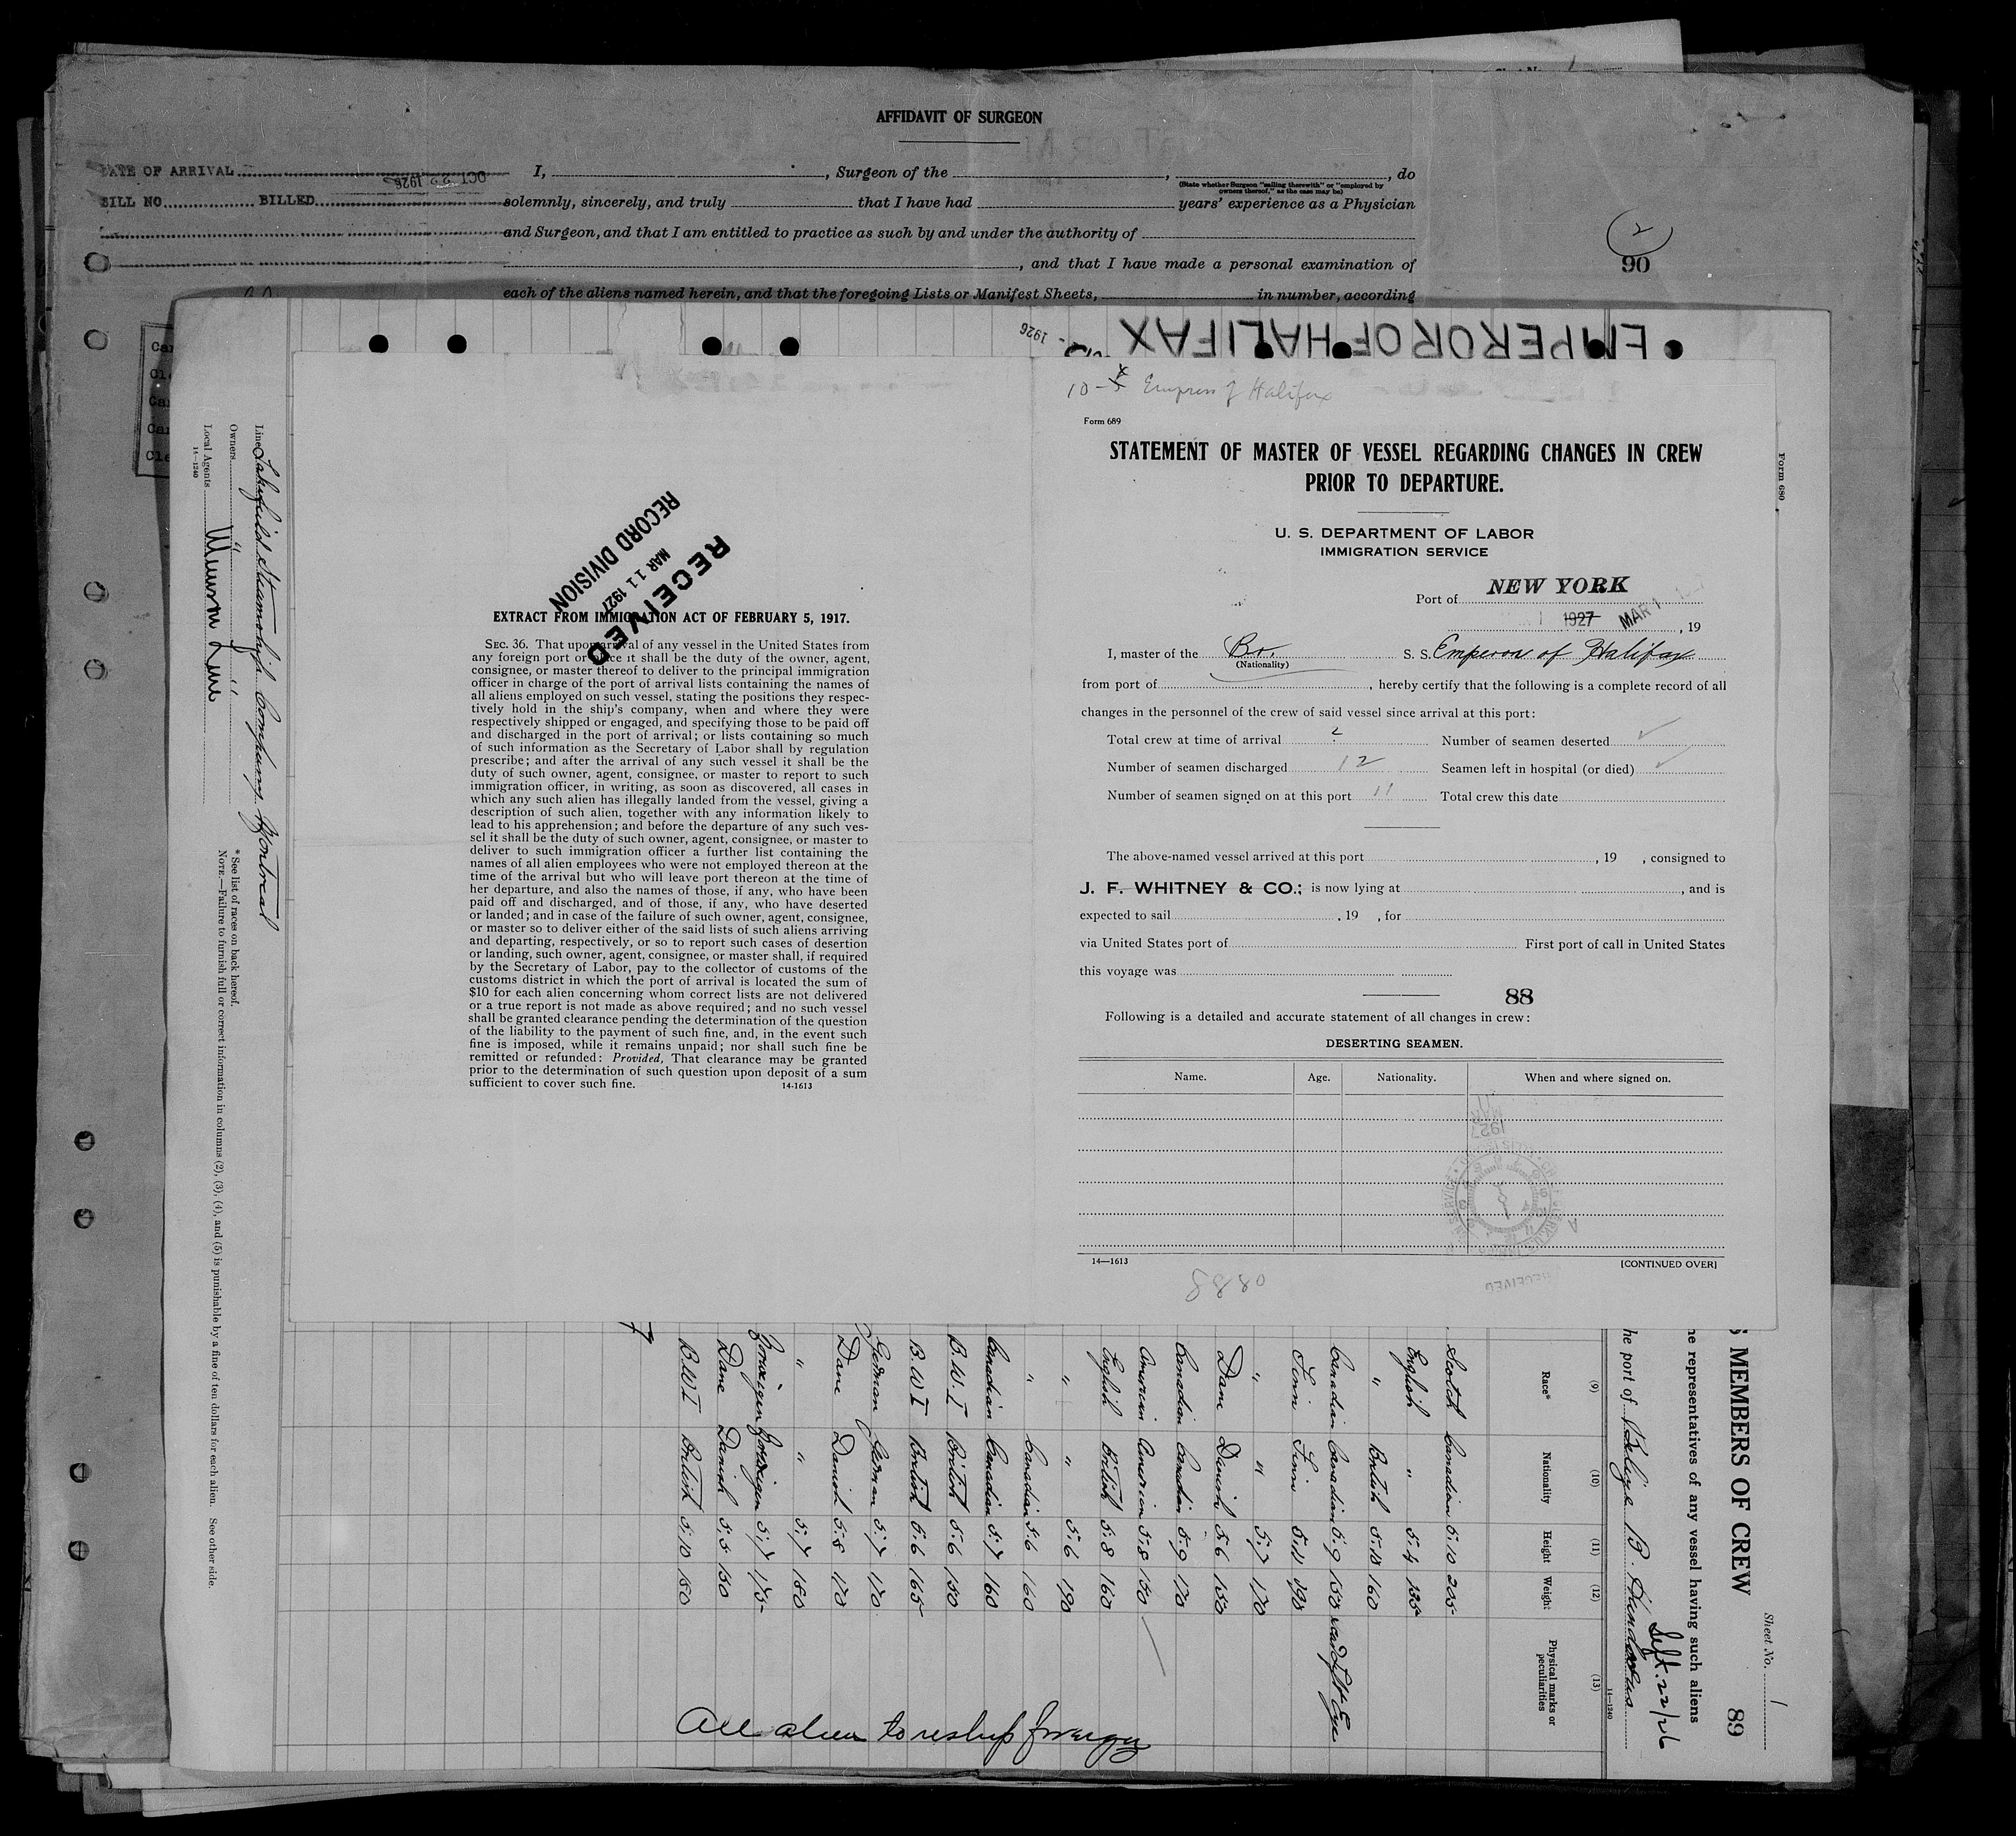 AFFIDAVIT OF SURGEON
DATE OF ARRIVAL
OCT 22 1926
BILL NO. BILLED
I, , Surgeon of the , , do
(State whether Surgeon "sailing therewith" or "employed by owners thereof," as the case may be)
solemnly, sincerely, and truly that I have had years' experience as a Physician
and Surgeon, and that I am entitled to practice as such by and under the authority of
, and that I have made a personal examination of
each of the aliens named herein, and that the foregoing Lists or Manifest Sheets, in number, according
2
90
EMPEROR OF HALIFAX
1926
10- Empress of Halifax
Form 689
STATEMENT OF MASTER OF VESSEL REGARDING CHANGES IN CREW
PRIOR TO DEPARTURE.
U. S. DEPARTMENT OF LABOR
IMMIGRATION SERVICE
Port of NEW YORK
1 1927 MAR 1 , 19
I, master of the Br. S. S. Emperor of Halifax
(Nationality)
from port of , hereby certify that the following is a complete record of all
changes in the personnel of the crew of said vessel since arrival at this port:
Total crew at time of arrival 2 Number of seamen deserted
Number of seamen discharged 12 Seamen left in hospital (or died)
Number of seamen signed on at this port 11 Total crew this date
The above-named vessel arrived at this port , 19 , consigned to
J. F. WHITNEY & CO.; is now lying at , and is
expected to sail , 19 , for
via United States port of First port of call in United States
this voyage was
88
Following is a detailed and accurate statement of all changes in crew:
DESERTING SEAMEN.
Name. Age. Nationality. When and where signed on.
MAR 11
1927
RECEIVED
14—1613
[CONTINUED OVER]
Form 680
RECEIVED
MAR 11 1927
RECORD DIVISION
EXTRACT FROM IMMIGRATION ACT OF FEBRUARY 5, 1917.
SEC. 36. That upon arrival of any vessel in the United States from
any foreign port or place it shall be the duty of the owner, agent,
consignee, or master thereof to deliver to the principal immigration
officer in charge of the port of arrival lists containing the names of
all aliens employed on such vessel, stating the positions they respec-
tively hold in the ship's company, when and where they were
respectively shipped or engaged, and specifying those to be paid off
and discharged in the port of arrival; or lists containing so much
of such information as the Secretary of Labor shall by regulation
prescribe; and after the arrival of any such vessel it shall be the
duty of such owner, agent, consignee, or master to report to such
immigration officer, in writing, as soon as discovered, all cases in
which any such alien has illegally landed from the vessel, giving a
description of such alien, together with any information likely to
lead to his apprehension; and before the departure of any such ves-
sel it shall be the duty of such owner, agent, consignee, or master to
deliver to such immigration officer a further list containing the
names of all alien employees who were not employed thereon at the
time of the arrival but who will leave port thereon at the time of
her departure, and also the names of those, if any, who have been
paid off and discharged, and of those, if any, who have deserted
or landed; and in case of the failure of such owner, agent, consignee,
or master so to deliver either of the said lists of such aliens arriving
and departing, respectively, or so to report such cases of desertion
or landing, such owner, agent, consignee, or master shall, if required
by the Secretary of Labor, pay to the collector of customs of the
customs district in which the port of arrival is located the sum of
$10 for each alien concerning whom correct lists are not delivered
or a true report is not made as above required; and no such vessel
shall be granted clearance pending the determination of the question
of the liability to the payment of such fine, and, in the event such
fine is imposed, while it remains unpaid; nor shall such fine be
remitted or refunded: Provided, That clearance may be granted
prior to the determination of such question upon deposit of a sum
sufficient to cover such fine. 14-1613
Line Steamship Company Montreal
Owners " "
Local Agents Munson Line
14—1240
* See list of races on back hereof.
NOTE.—Failure to furnish full or correct information in columns (2), (3), (4), and (5) is punishable by a fine of ten dollars for each alien. See other side.
Sheet No. 1
89
MEMBERS OF CREW
he representatives of any vessel having such aliens
he port of Belize B. Honduras Sept. 22/26
14—1240
(9) (10) (11) (12) (13)
Race* Nationality Height Weight Physical marks or peculiarities
Scotch Canadian 5.10 205
English " 5.4 125
" British 5.10 160
Canadian Canadian 5.9 150
Finn Finn 5.11 190
" " 5.7 170
Dane Danish 5.6 150
Canadian Canadian 5.9 170
American American 5.8 150
English British 5.8 160
" " 5.6 190
" Canadian 5.6 160
Canadian Canadian 5.7 160
B.W.I. British 5.6 150
B.W.I British 5.6 165
German German 5.7 170
Dane Danish 5.8 170
" " 5.7 180
Norwegen Norwegen 5.7 175
Dane Danish 5.5 150
B.W.I British 5.10 150
All alien to reship foreign